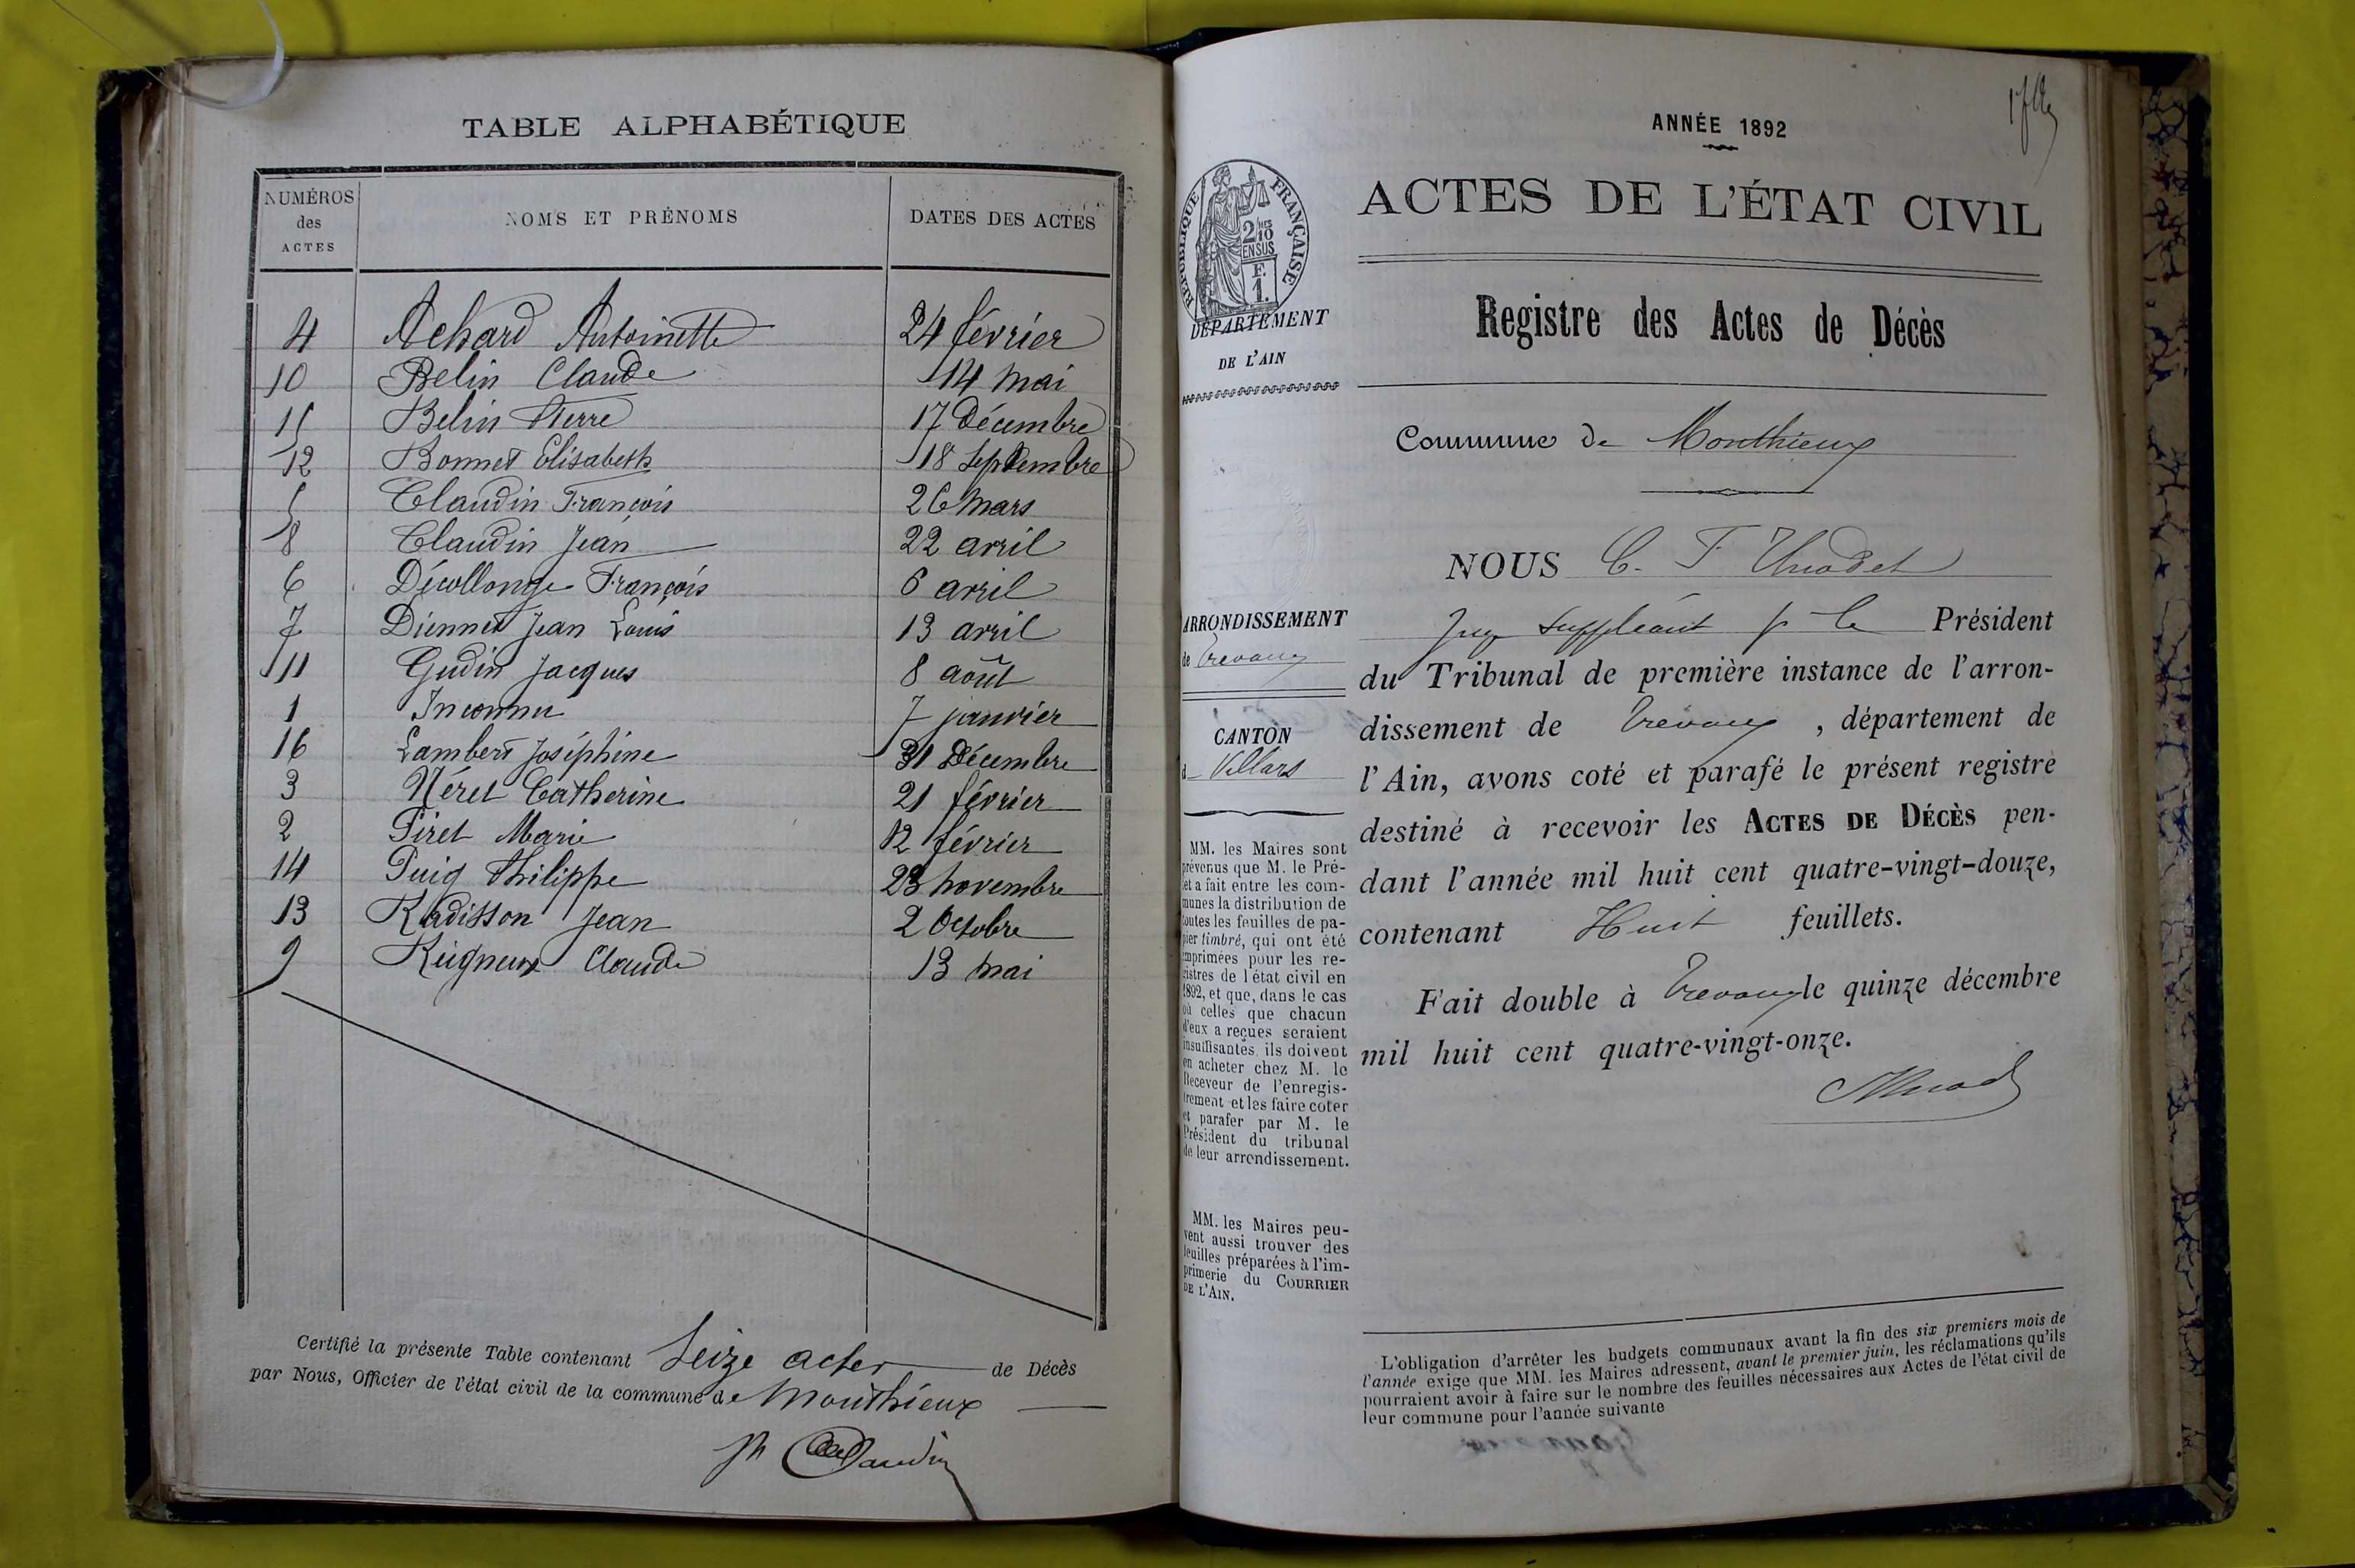 TABLE ALPHABÉTIQUE
NUMÉROS des ACTES NOMS ET PRÉNOMS DATES DES ACTES
4 Achard Antoinette 24 février
10 Belin Claude 14 mai
15 Belin Pierre 17 Décembre
12 Bonnet Elisabeth 18 Septembre
5 Claudin François 26 mars
8 Claudin Jean 22 avril
6 Décollonge François 6 avril
7 Diennet Jean Louis 13 avril
11 Gudin Jacques 8 août
1 Inconnu 7 janvier
16 Lambert Joséphine 31 Décembre
3 Néret Catherine 21 février
2 Piret Marie 12 février
14 Puig Philippe 23 novembre
13 Radisson Jean 2 Octobre
9 Reigneux Claude 13 mai
Certifié la présente Table contenant Seize actes de Décès
par Nous, Officier de l'état civil de la commune de Monthieux
Claudin
ANNÉE 1892
ACTES DE L'ÉTAT CIVIL
RÉPUBLIQUE FRANÇAISE
2/10 EN SUS
F. 1.
DÉPARTEMENT
DE L'AIN
Registre des Actes de Décès
Commune de Monthieux
NOUS C. F.
Juge suppléant p le Président
du Tribunal de première instance de l'arron-
dissement de Trevoux, département de
l'Ain, avons coté et parafé le présent registre
destiné à recevoir les ACTES DE DÉCÈS pen-
dant l'année mil huit cent quatre-vingt-douze,
contenant Huit feuillets.
Fait double à Trevoux le quinze décembre
mil huit cent quatre-vingt-onze.
ARRONDISSEMENT
de Trevoux
CANTON
d Villars
MM. les Maires sont
prévenus que M. le Pré-
fet a fait entre les com-
munes la distribution de
toutes les feuilles de pa-
pier timbré, qui ont été
imprimées pour les re-
gistres de l'état civil en
1892, et que, dans le cas
où celles que chacun
d'eux a reçues seraient
insuffisantes, ils doivent
en acheter chez M. le
Receveur de l'enregis-
trement et les faire coter
et parafer par M. le
Président du tribunal
de leur arrondissement.
MM. les Maires peu-
vent aussi trouver des
feuilles préparées à l'im-
primerie du COURRIER
DE L'AIN.
L'obligation d'arrêter les budgets communaux avant la fin des six premiers mois de
l'année exige que MM. les Maires adressent, avant le premier juin, les réclamations qu'ils
pourraient avoir à faire sur le nombre des feuilles nécessaires aux Actes de l'état civil de
leur commune pour l'année suivante